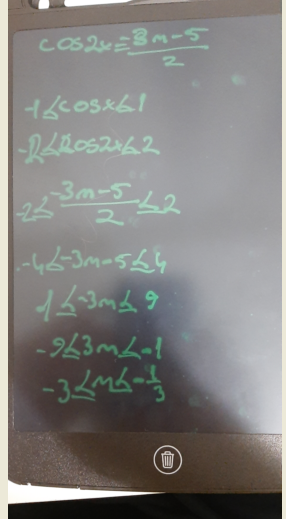 cos2x = 3m-5/2
-1≤cosx≤1
-2≤2cos2x≤2
-2≤ -3m-5/2 ≤2
-4≤-3m-5≤4
1≤-3m≤9
-9≤3m≤-1
-3≤m≤-1/3